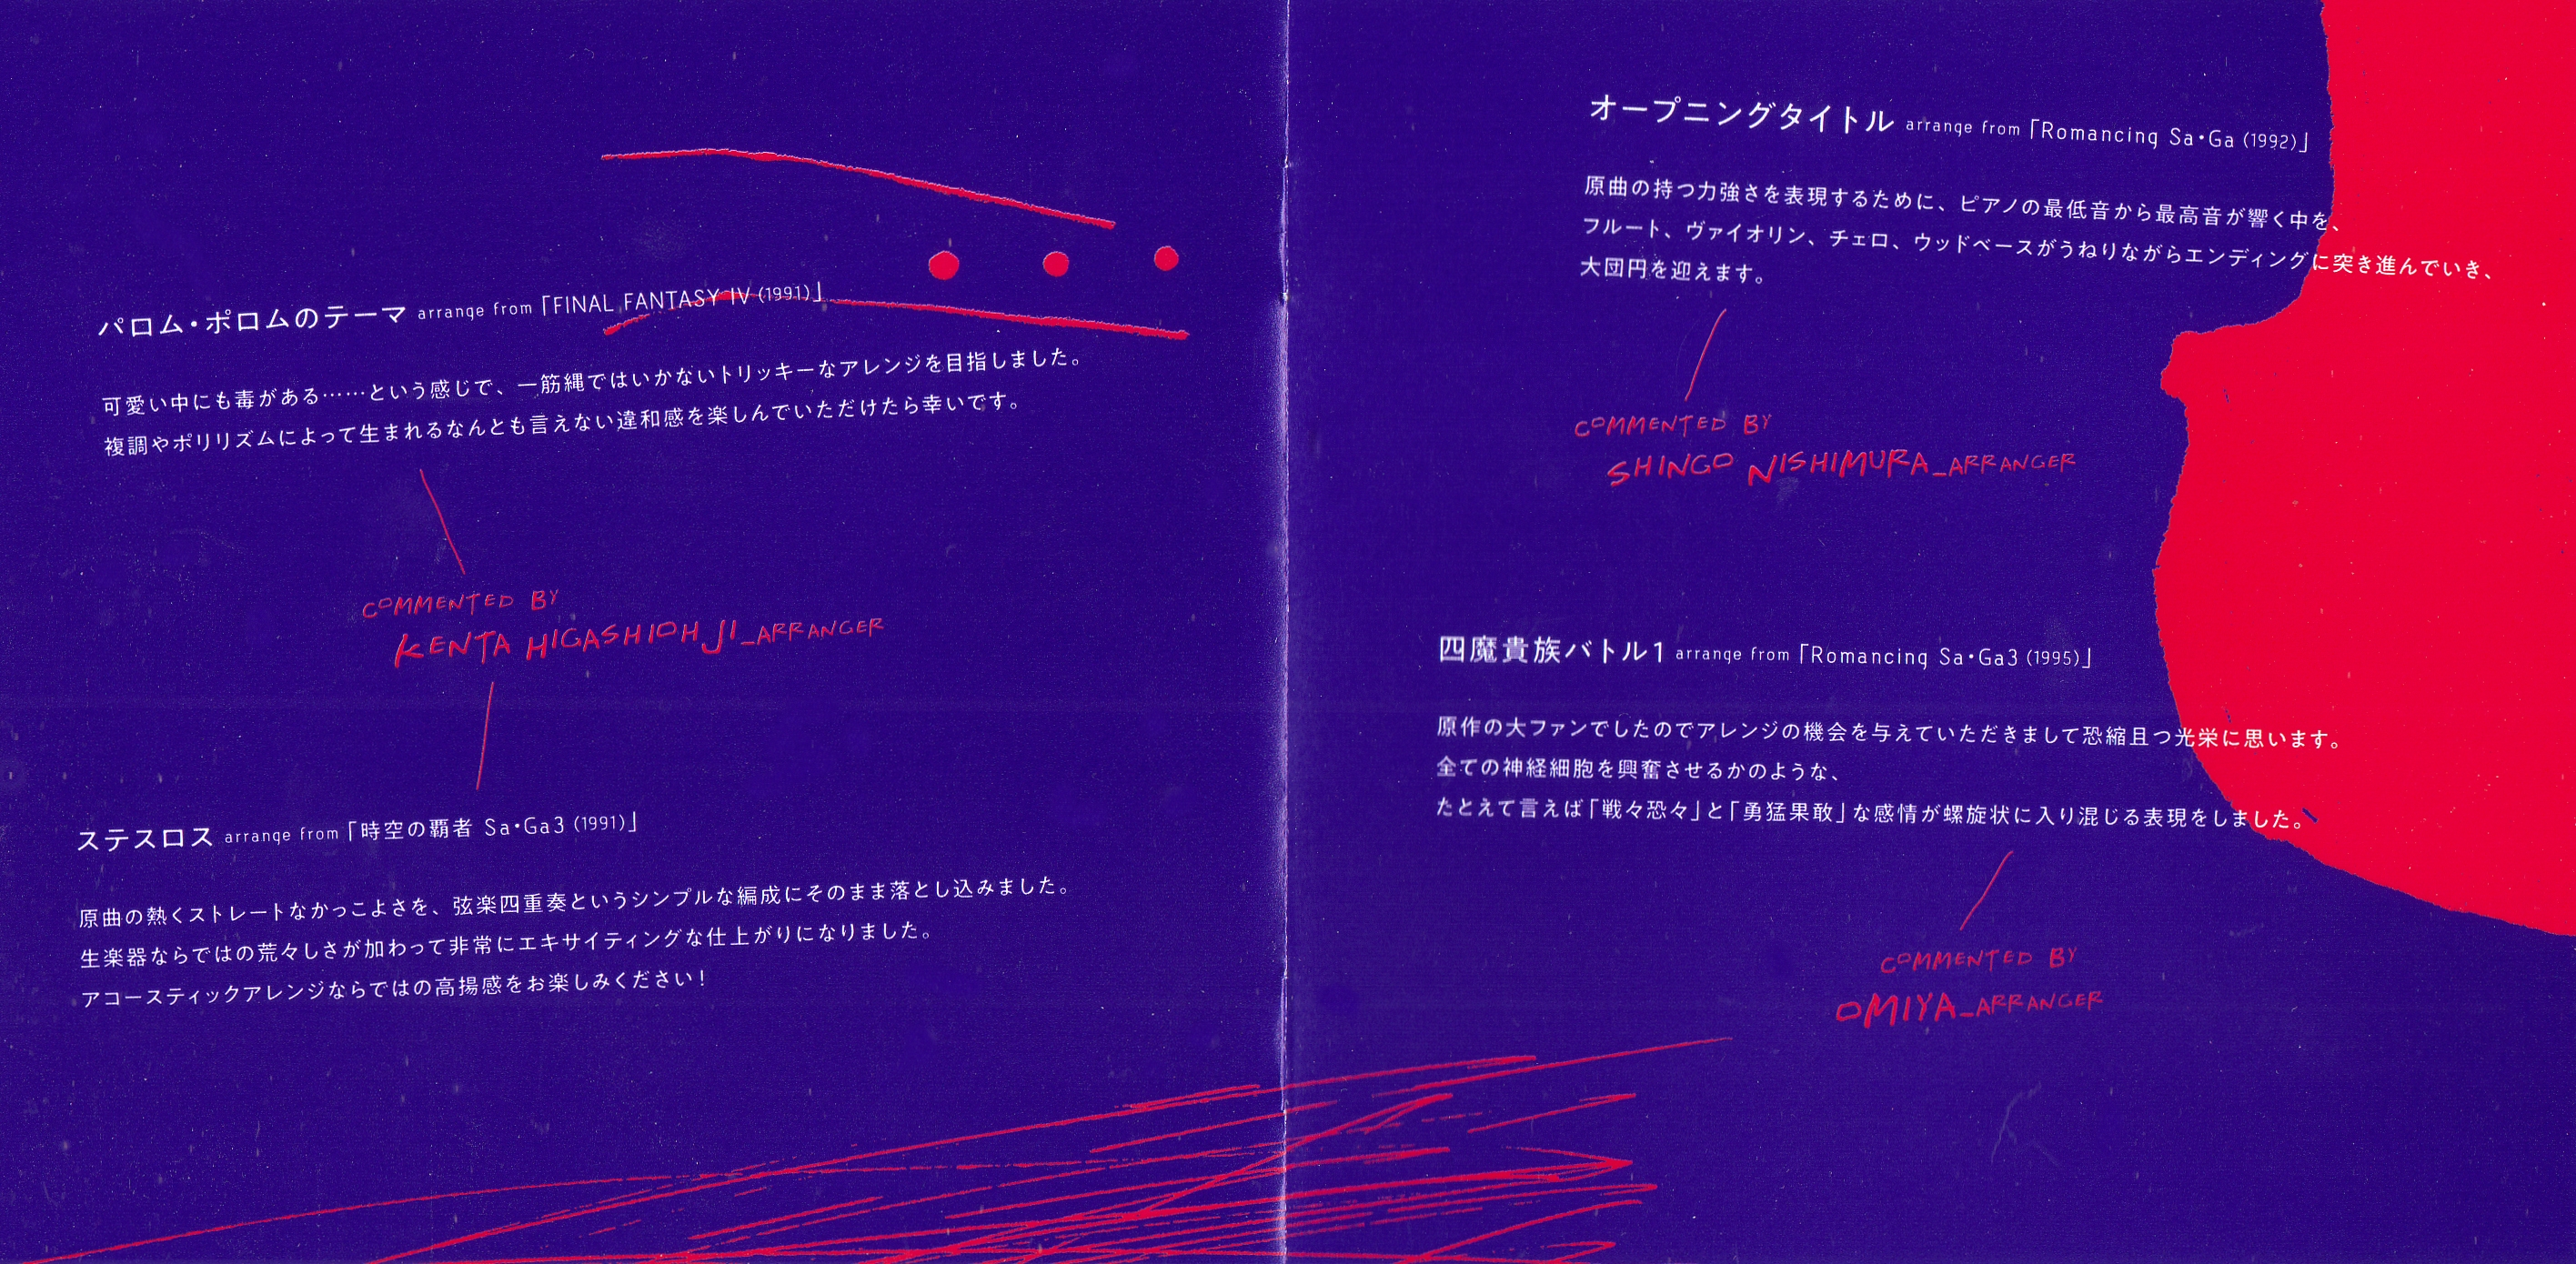 パロム・ポロムのテーマ arrange from「FINAL FANTASY IV (1991)」
可愛い中にも毒がある……という感じで、一筋縄ではいかないトリッキーなアレンジを目指しました。
複調やポリリズムによって生まれるなんとも言えない違和感を楽しんでいただけたら幸いです。
COMMENTED BY
KENTA HIGASHIOHJI_ARRANGER
ステスロス arrange from「時空の覇者 Sa・Ga3 (1991)」
原曲の熱くストレートなかっこよさを、弦楽四重奏というシンプルな編成にそのまま落とし込みました。
生楽器ならではの荒々しさが加わって非常にエキサイティングな仕上がりになりました。
アコースティックアレンジならではの高揚感をお楽しみください！
オープニングタイトル arrange from「Romancing Sa・Ga (1992)」
原曲の持つ力強さを表現するために、ピアノの最低音から最高音が響く中を、
フルート、ヴァイオリン、チェロ、ウッドベースがうねりながらエンディングに突き進んでいき、
大団円を迎えます。
COMMENTED BY
SHINGO NISHIMURA_ARRANGER
四魔貴族バトル1 arrange from「Romancing Sa・Ga3 (1995)」
原作の大ファンでしたのでアレンジの機会を与えていただきまして恐縮且つ光栄に思います。
全ての神経細胞を興奮させるかのような、
たとえて言えば「戦々恐々」と「勇猛果敢」な感情が螺旋状に入り混じる表現をしました。
COMMENTED BY
OMIYA_ARRANGER